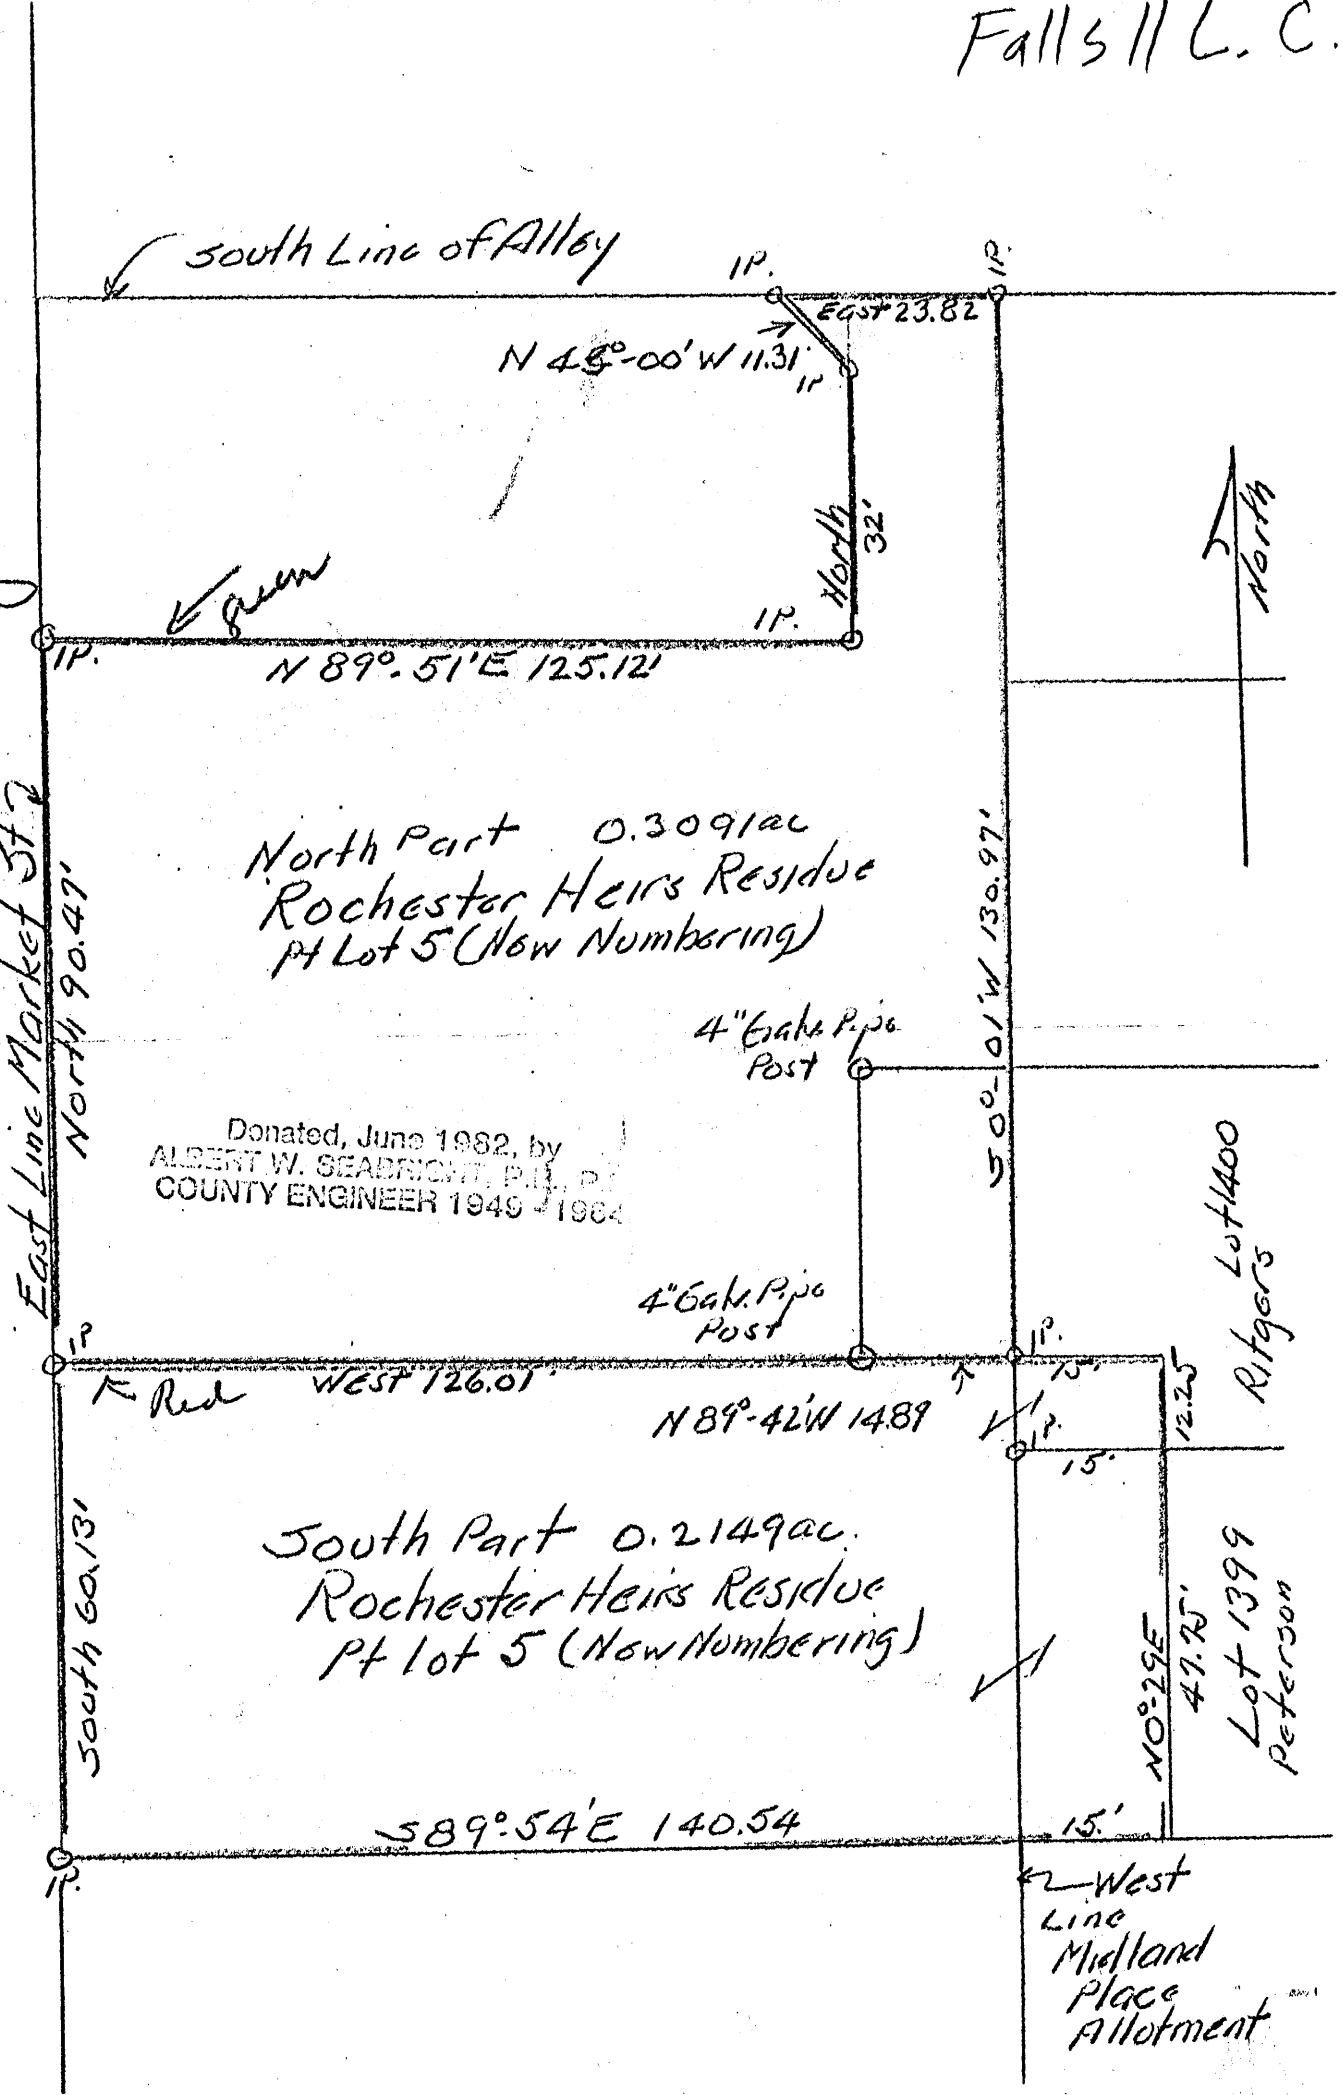 Falls 11 L. C.
South Line of Alley
I.P.
I.P.
East 23.82
N 45°-00' W 11.31'
I.P.
North
32'
North
green
I.P.
I.P.
N 89°-51' E 125.12'
East Line Market St
North 90.47'
North Part 0.3091 ac
Rochester Heirs Residue
Pt Lot 5 (New Numbering)
S 0°-01' W 130.97'
4" Galv. Pipe
Post
Donated, June 1982, by
ALBERT W. SEABRIGHT, P.E., P.
COUNTY ENGINEER 1949 - 1964
Lot 1400
Ritgers
4" Galv. Pipe
Post
I.P.
I.P.
15'
Red
West 126.01'
N 89°-42' W 14.89
12.25
I.P.
15'
South 60.13'
South Part 0.2149 ac.
Rochester Heirs Residue
Pt lot 5 (New Numbering)
N 0°-29 E
47.75'
Lot 1399
Peterson
S 89°-54' E 140.54
15'
I.P.
West
Line
Midland
Place
Allotment